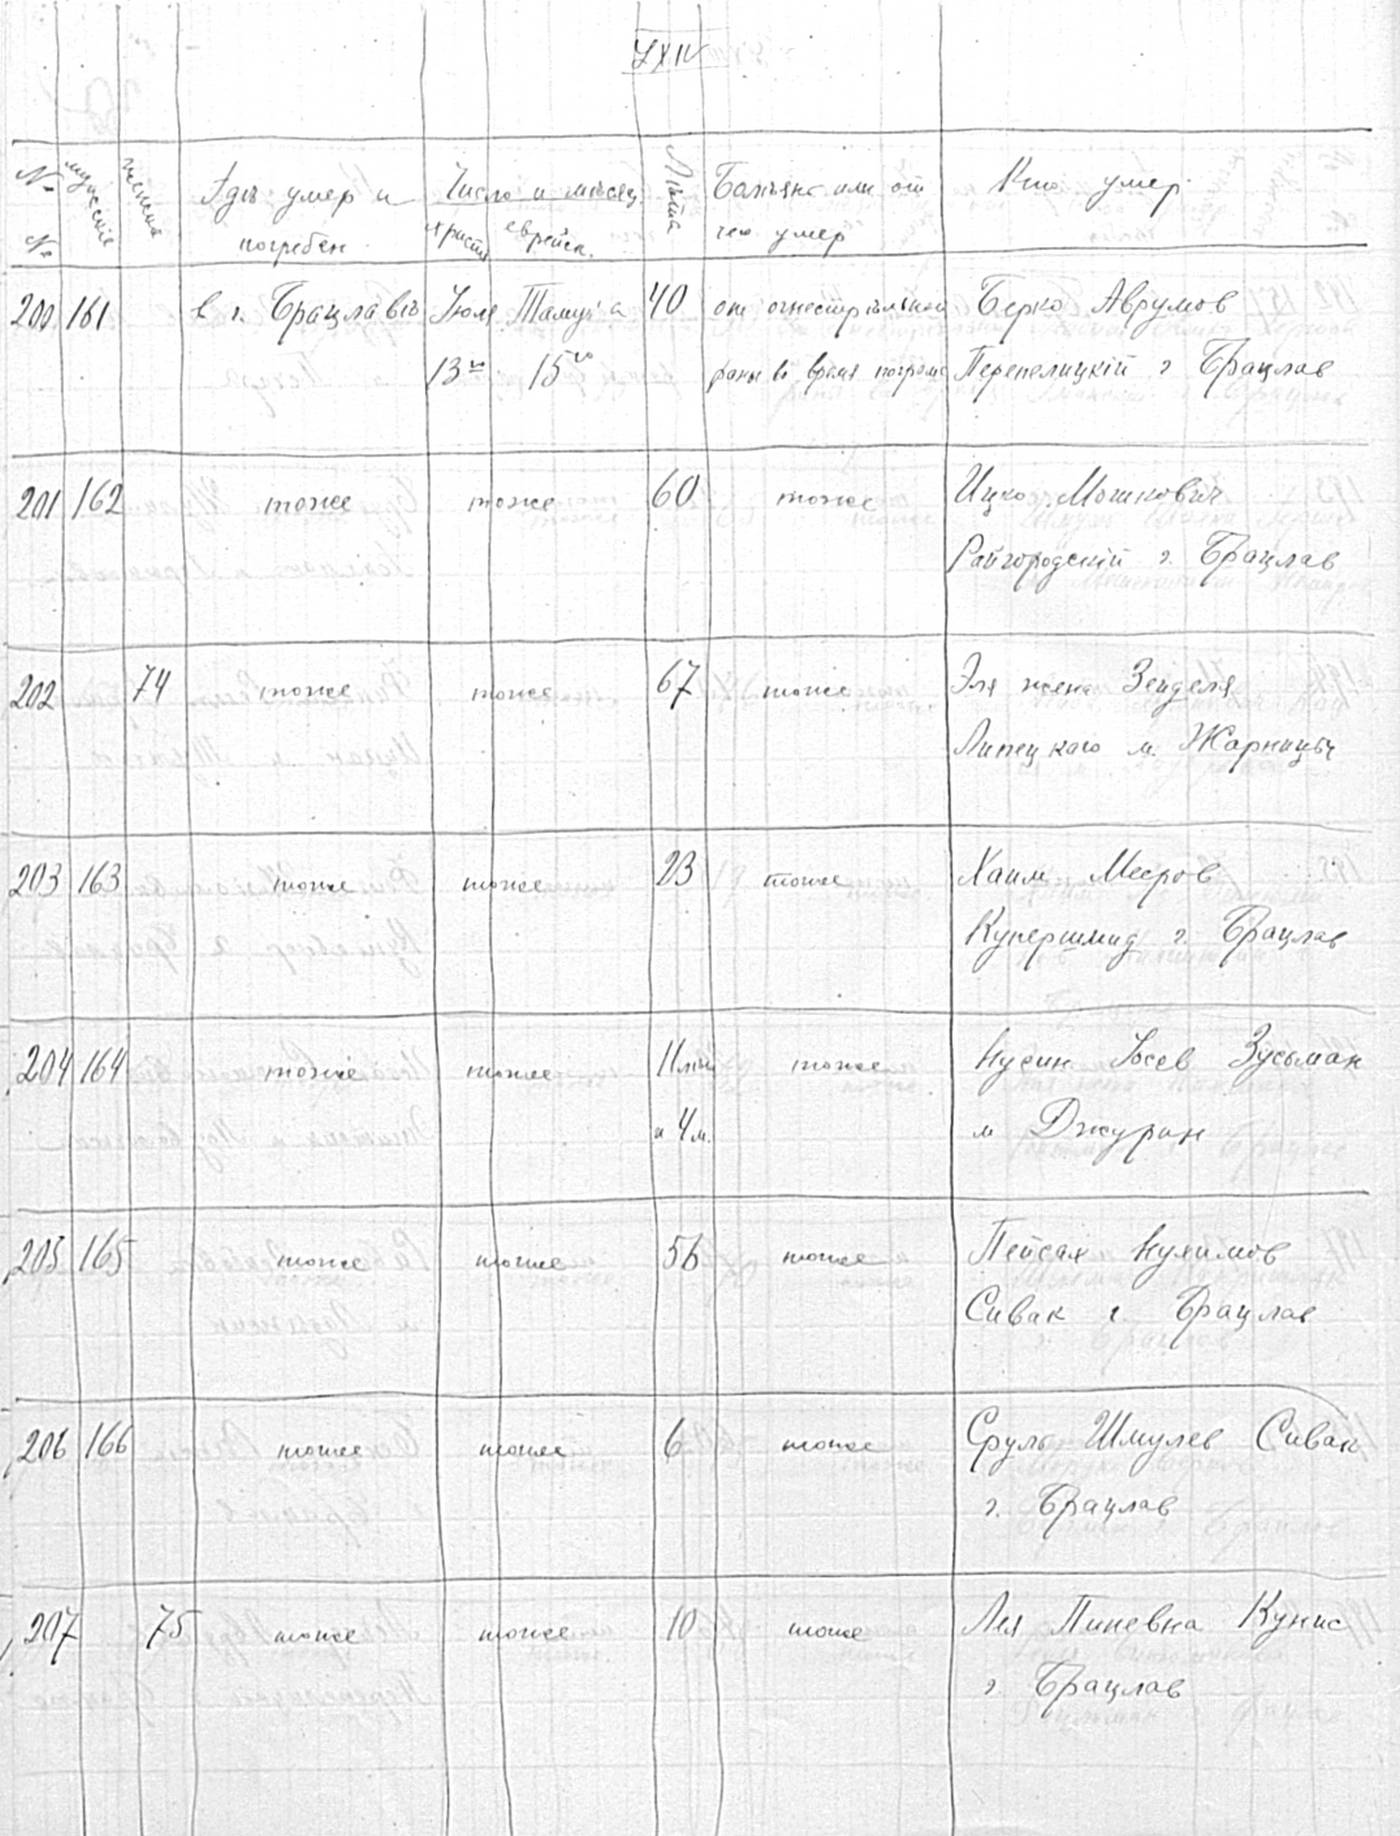 LXIV
№ № мужскіе женскія Гдѣ умер и погребен Число и мѣсяц христ. еврейск. Лѣта Болѣзнь или от чего умер Кто умер
200 161 в г. Брацлавѣ Іюля Тамуза 40 от огнестрѣльной Берко Аврумов
13го 15го раны во время погрома Перепелицкій г Брацлав
201 162 тоже тоже 60 тоже Ицко Мошкович
Райгородскій г. Брацлав
202 74 тоже тоже 67 тоже Эля жена Зейделя
Липецкаго м. Жорницы
203 163 тоже тоже 23 тоже Хаим Мееров
Купершмид г. Брацлав
204 164 тоже тоже 11 лѣт тоже Нусин Іосев Зусьман
и 4 м. м Джурин
205 165 тоже тоже 56 тоже Пейсах Нухимов
Сивак г. Брацлав
206 166 тоже тоже 6 тоже Сруль Шмулев Сивак
г. Брацлав
207 75 тоже тоже 10 тоже Лея Пиневна Кунис
г. Брацлав